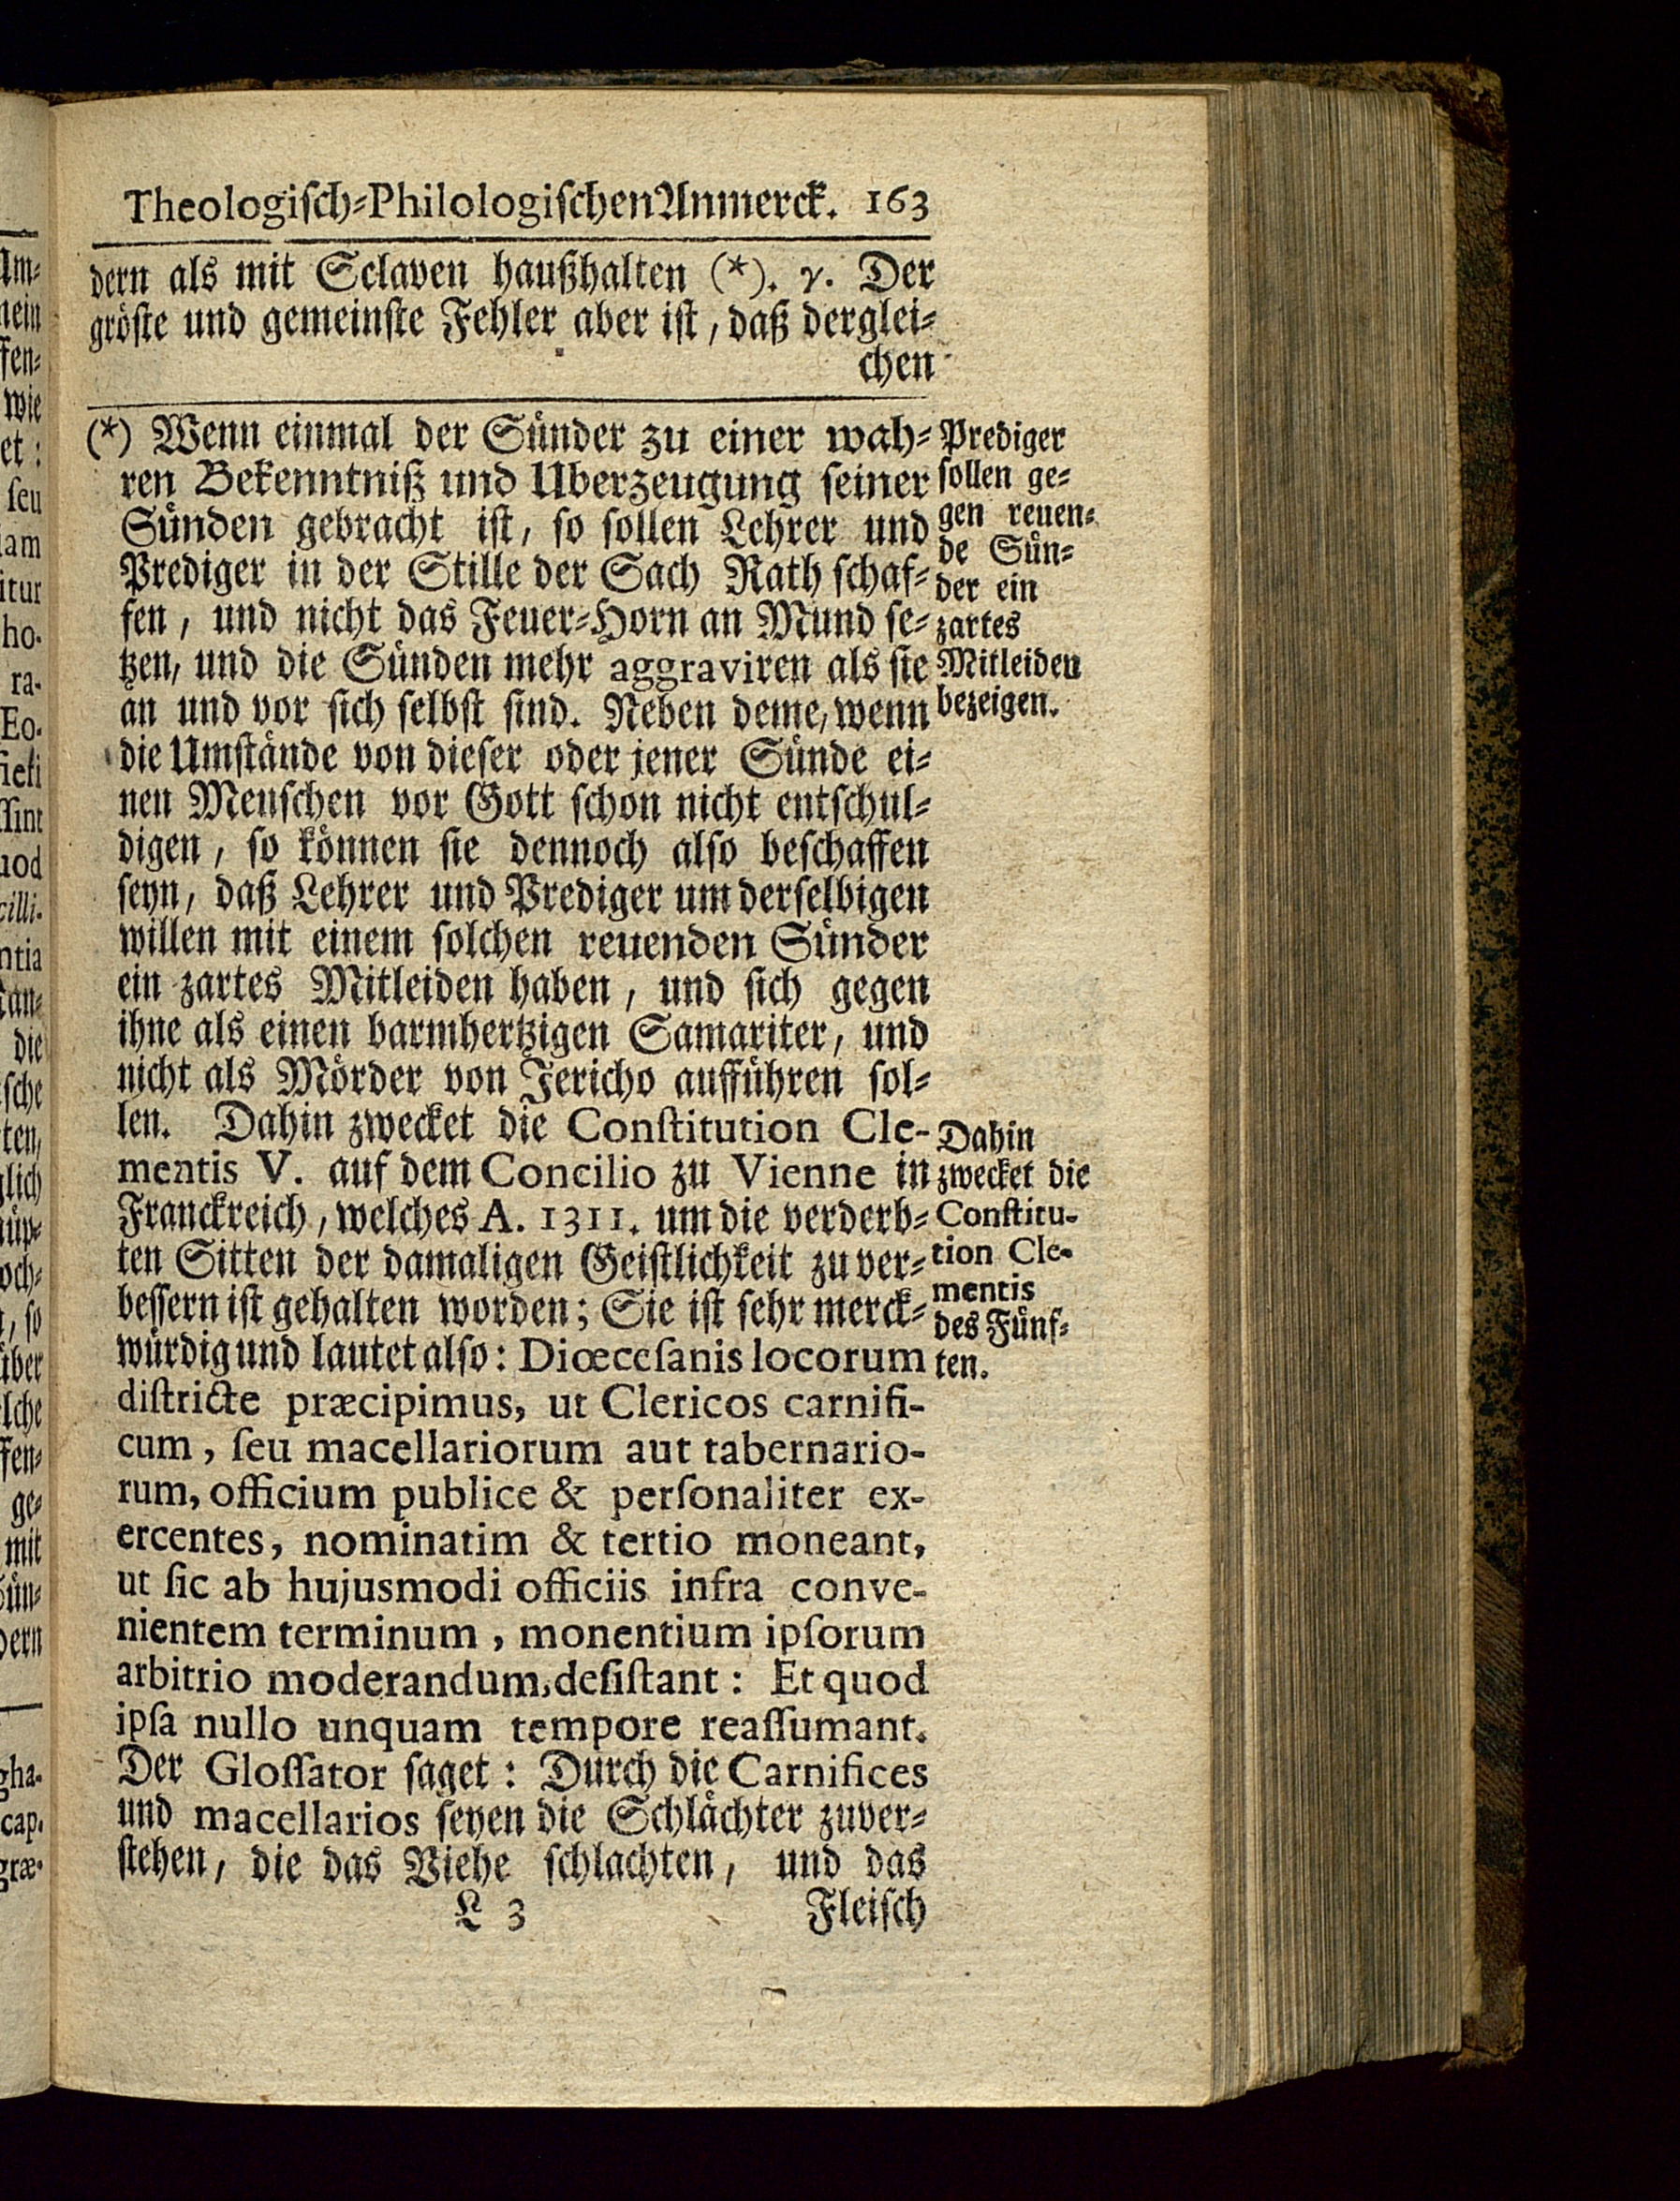 Theologisch-Philologischen Anmerck. 163
dern als mit Sclaven haußhalten (*). γ. Der
gröste und gemeinste Fehler aber ist, daß derglei-
chen
(*) Wenn einmal der Sünder zu einer wah-
ren Bekenntniß und Uberzeugung seiner
Sünden gebracht ist, so sollen Lehrer und
Prediger in der Stille der Sach Rath schaf-
fen, und nicht das Feuer-Horn an Mund se-
tzen, und die Sünden mehr aggraviren als sie
an und vor sich selbst sind. Neben deme, wenn
die Umstände von dieser oder jener Sünde ei-
nen Menschen vor Gott schon nicht entschul-
digen, so können sie dennoch also beschaffen
seyn, daß Lehrer und Prediger um derselbigen
willen mit einem solchen reuenden Sünder
ein zartes Mitleiden haben, und sich gegen
ihne als einen barmhertzigen Samariter, und
nicht als Mörder von Jericho aufführen sol-
len. Dahin zwecket die Constitution Cle-
mentis V. auf dem Concilio zu Vienne in
Franckreich, welches A. 1311. um die verderb-
ten Sitten der damaligen Geistlichkeit zu ver-
bessern ist gehalten worden; Sie ist sehr merck-
würdig und lautet also: Diœcesanis locorum
districte præcipimus, ut Clericos carnifi-
cum, seu macellariorum aut tabernario-
rum, officium publice & personaliter ex-
ercentes, nominatim & tertio moneant,
ut sic ab hujusmodi officiis infra conve-
nientem terminum, monentium ipsorum
arbitrio moderandum, desistant: Et quod
ipsa nullo unquam tempore reassumant.
Der Glossator saget: Durch die Carnifices
und macellarios seyen die Schlächter zuver-
stehen, die das Viehe schlachten, und das
L 3 Fleisch
Prediger
sollen ge-
gen reuen-
de Sün-
der ein
zartes
Mitleiden
bezeigen.
Dahin
zwecket die
Constitu-
tion Cle-
mentis
des Fünf-
ten.